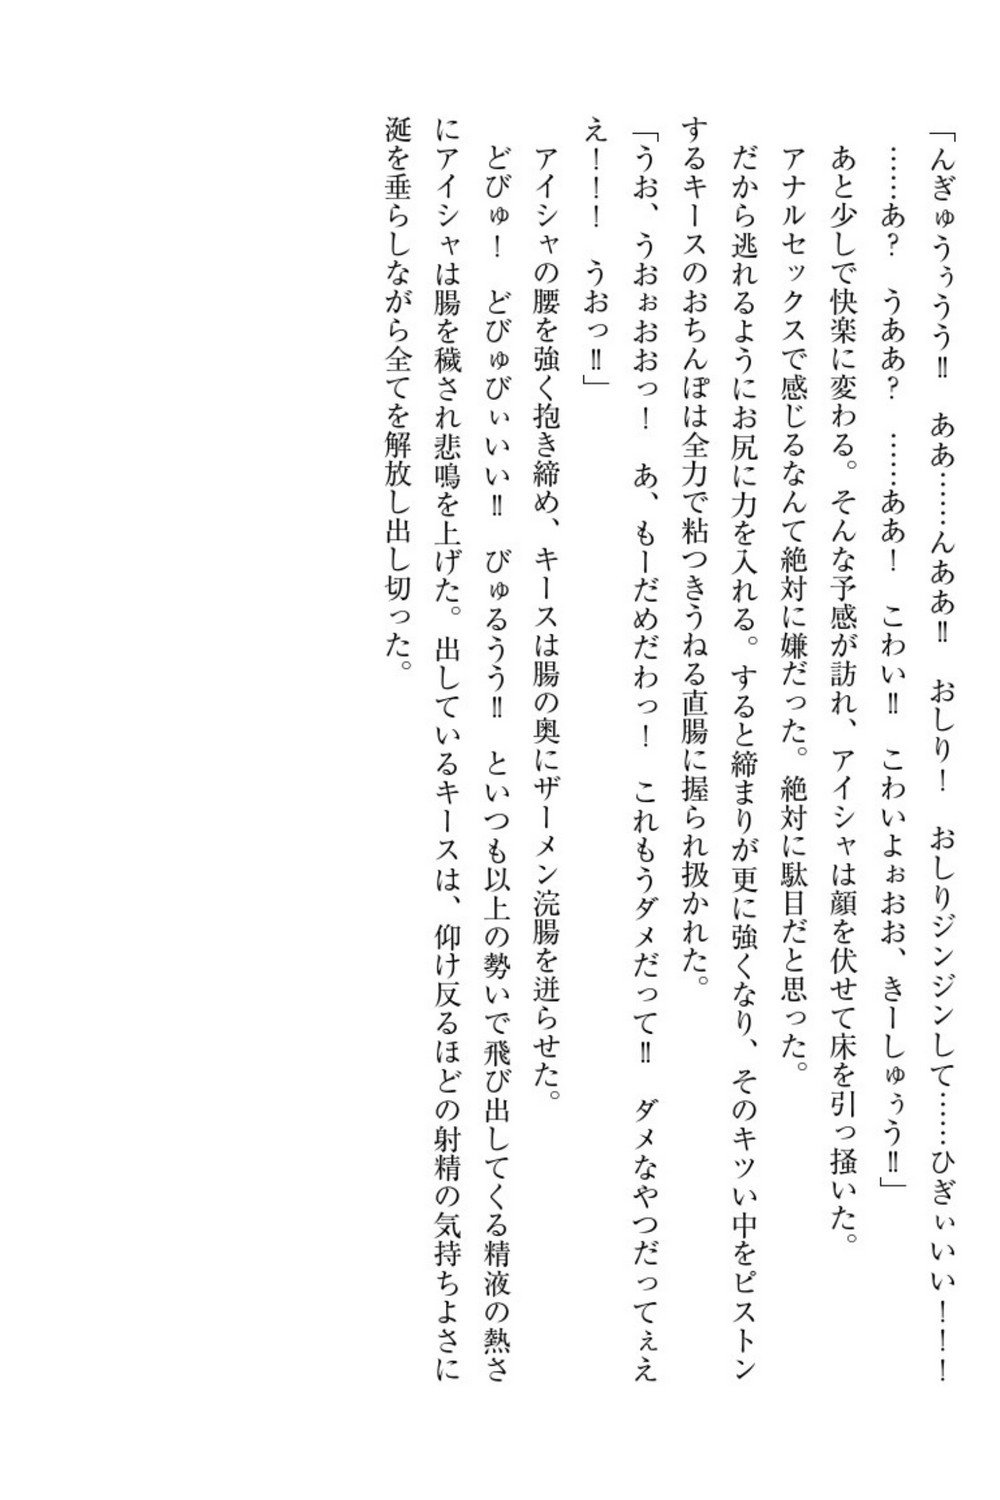 「んぎゅうぅうう‼　ああ……んああ‼　おしり！　おしりジンジンして……ひぎぃいい！！！
……あ？　うああ？　……ああ！　こわい‼　こわいよぉおお、きーしゅぅう‼」
あと少しで快楽に変わる。そんな予感が訪れ、アイシャは顔を伏せて床を引っ掻いた。
アナルセックスで感じるなんて絶対に嫌だった。絶対に駄目だと思った。
だから逃れるようにお尻に力を入れる。すると締まりが更に強くなり、そのキツい中をピストン
するキースのおちんぽは全力で粘つきうねる直腸に握られ扱かれた。
「うお、うおぉおおっ！　あ、もーだめだわっ！　これもうダメだって‼　ダメなやつだってぇえ
え！！！　うおっ‼」
アイシャの腰を強く抱き締め、キースは腸の奥にザーメン浣腸を迸らせた。
どびゅ！　どびゅびぃいい‼　びゅるうう‼　といつも以上の勢いで飛び出してくる精液の熱さ
にアイシャは腸を穢され悲鳴を上げた。出しているキースは、仰け反るほどの射精の気持ちよさに
涎を垂らしながら全てを解放し出し切った。